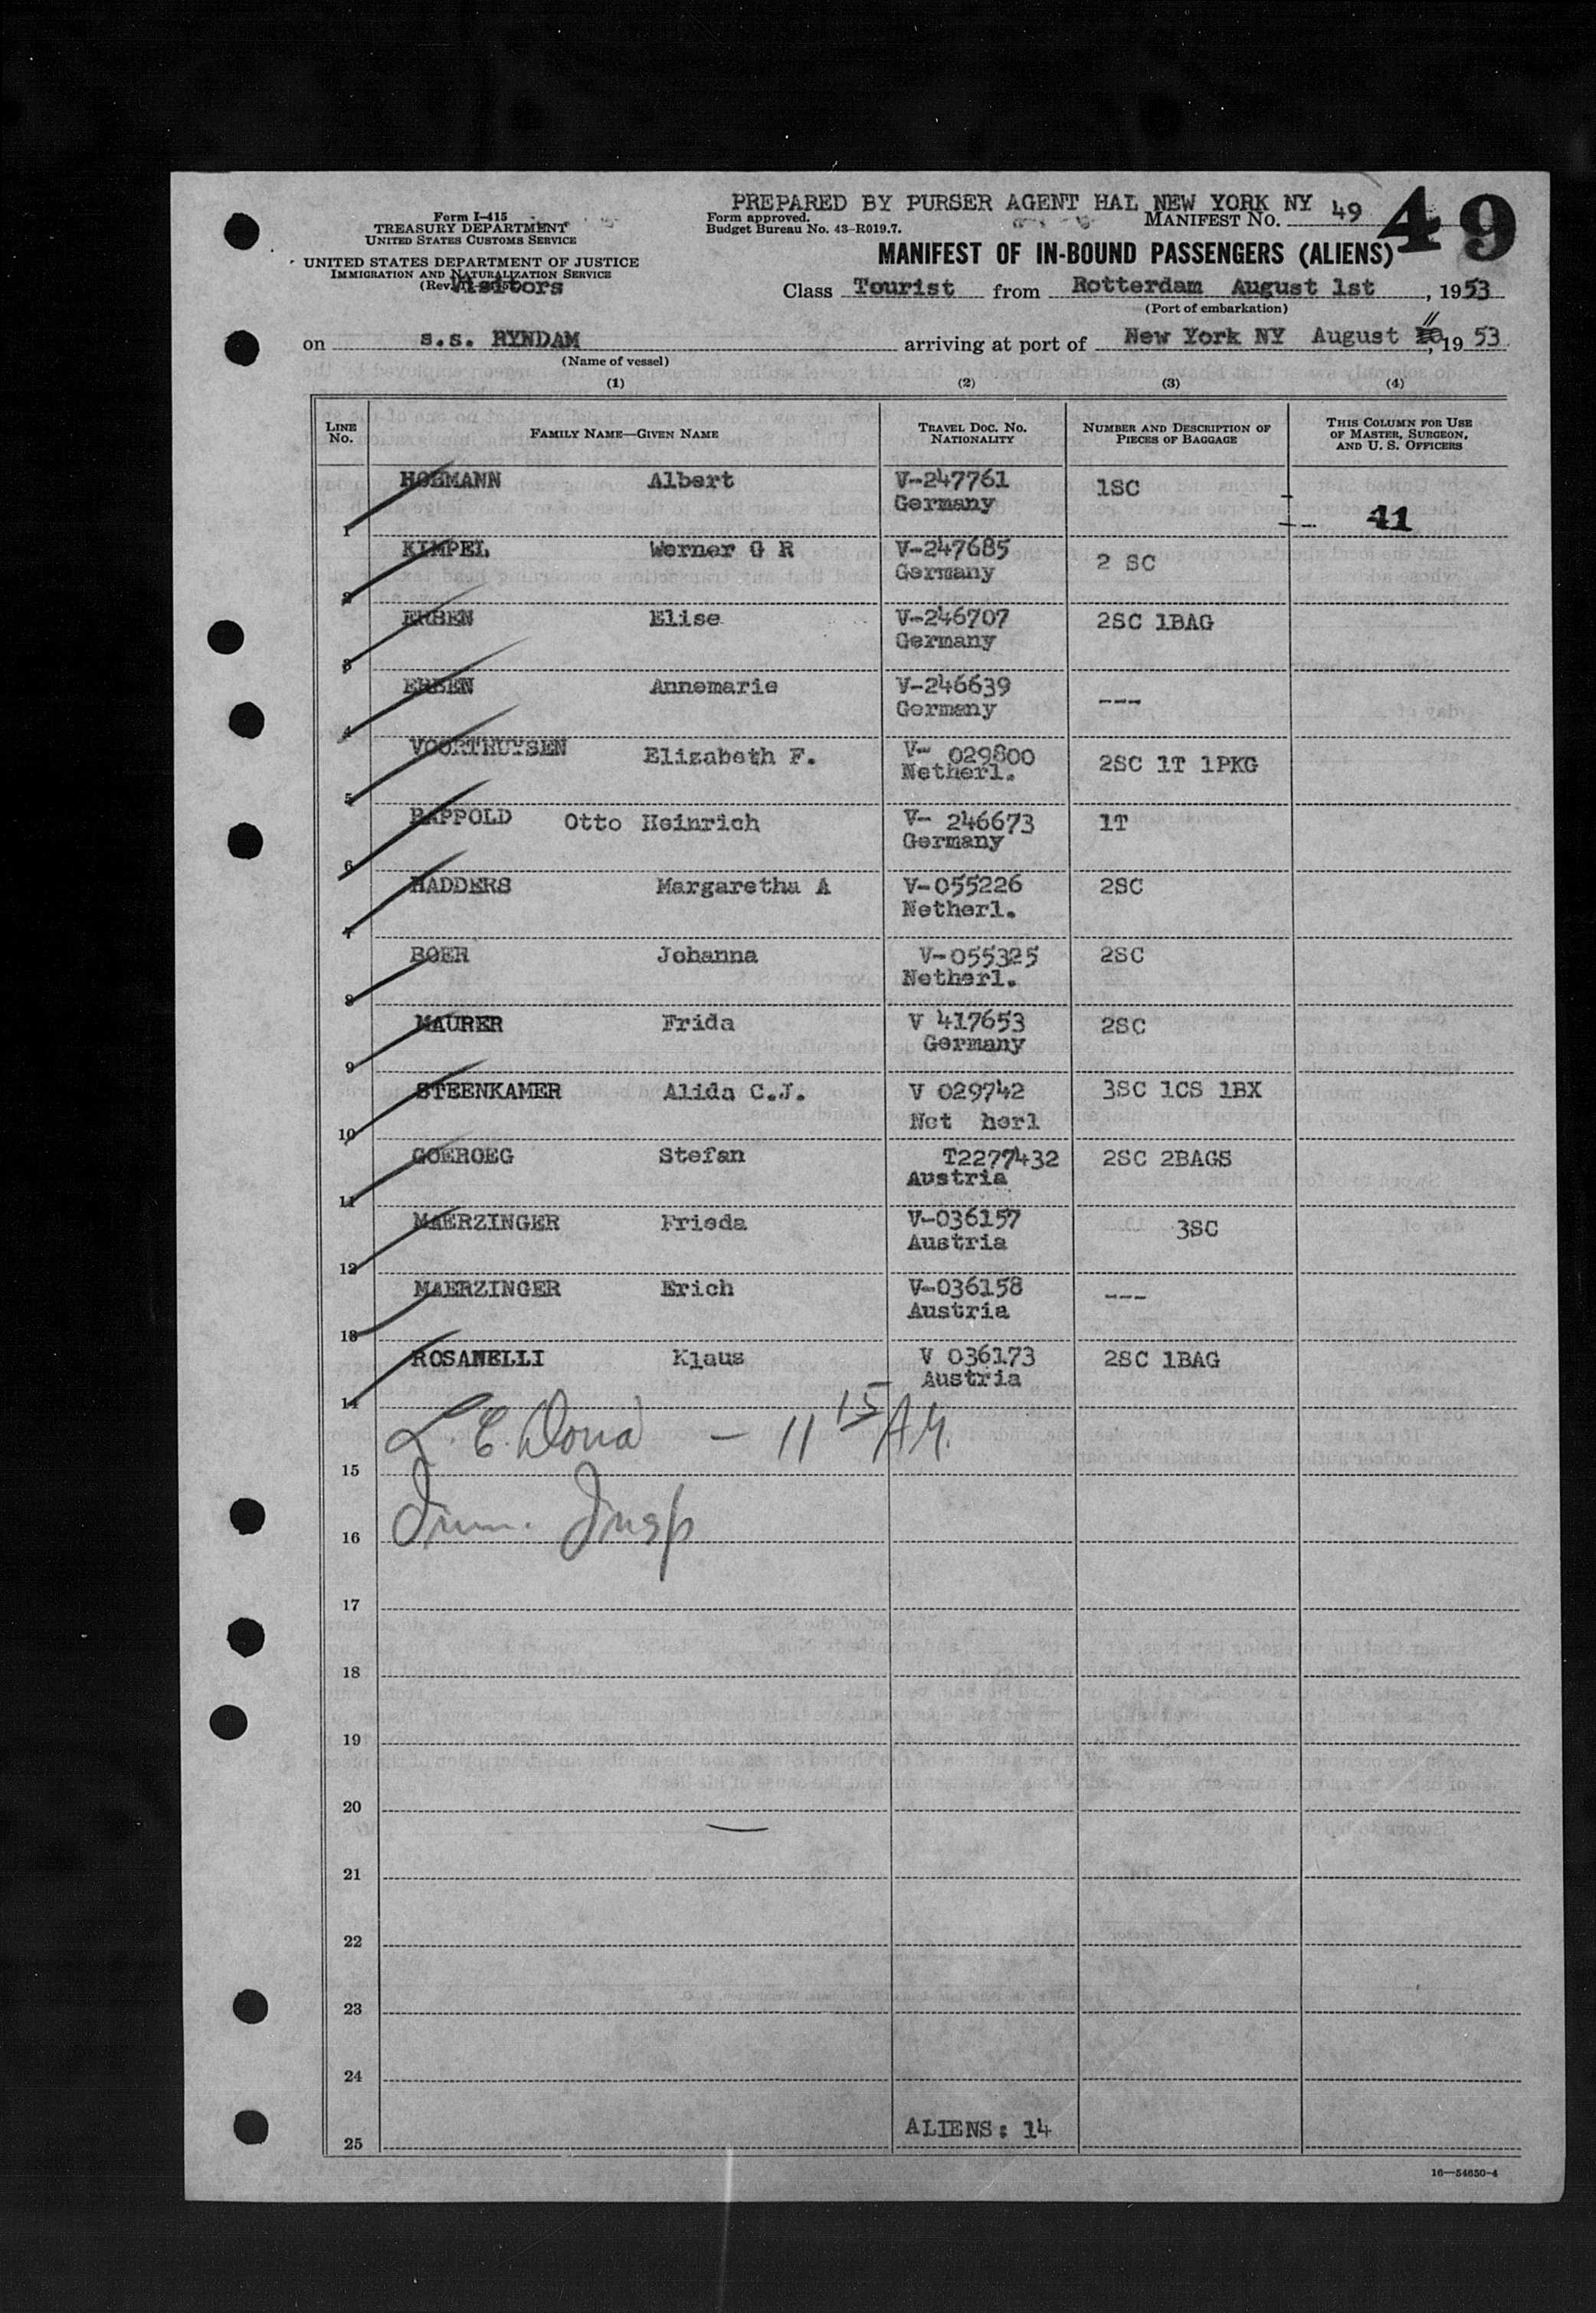 PREPARED BY PURSER AGENT HAL NEW YORK NY
Form I-415
TREASURY DEPARTMENT
UNITED STATES CUSTOMS SERVICE
UNITED STATES DEPARTMENT OF JUSTICE
IMMIGRATION AND NATURALIZATION SERVICE
(Rev.
Visitors
Form approved.
Budget Bureau No. 43-R019.7.
MANIFEST NO. 49
49
MANIFEST OF IN-BOUND PASSENGERS (ALIENS)
Class Tourist from Rotterdam August 1st, 1953
(Port of embarkation)
on s.s. RYNDAM arriving at port of New York NY August 11, 1953
(Name of vessel)
(1) (2) (3) (4)
LINE No. FAMILY NAME—GIVEN NAME TRAVEL DOC. NO. NATIONALITY NUMBER AND DESCRIPTION OF PIECES OF BAGGAGE THIS COLUMN FOR USE OF MASTER, SURGEON, AND U. S. OFFICERS
1 HOHMANN Albert V-247761 Germany 1SC 41
2 KIMPEL Werner G R V-247685 Germany 2 SC
3 ERBEN Elise V-246707 Germany 2SC 1BAG
4 ERBEN Annemarie V-246639 Germany ---
5 VOORTHUYSEN Elizabeth F. V- 029800 Netherl. 2SC 1T 1PKG
6 RAPPOLD Otto Heinrich V- 246673 Germany 1T
7 HADDERS Margaretha A V-055226 Netherl. 2SC
8 BOER Johanna V-055325 Netherl. 2SC
9 MAURER Frida V 417653 Germany 2SC
10 STEENKAMER Alida C.J. V 029742 Net herl 3SC 1CS 1BX
11 GOEROEG Stefan T2277432 Austria 2SC 2BAGS
12 MAERZINGER Frieda V-036157 Austria 3SC
13 MAERZINGER Erich V-036158 Austria ---
14 ROSANELLI Klaus V 036173 Austria 2SC 1BAG
L. E. — 11 15 AM.
15
Imm. Insp
16
17
18
19
20
21
22
23
24
25 ALIENS: 14
16—54650-4